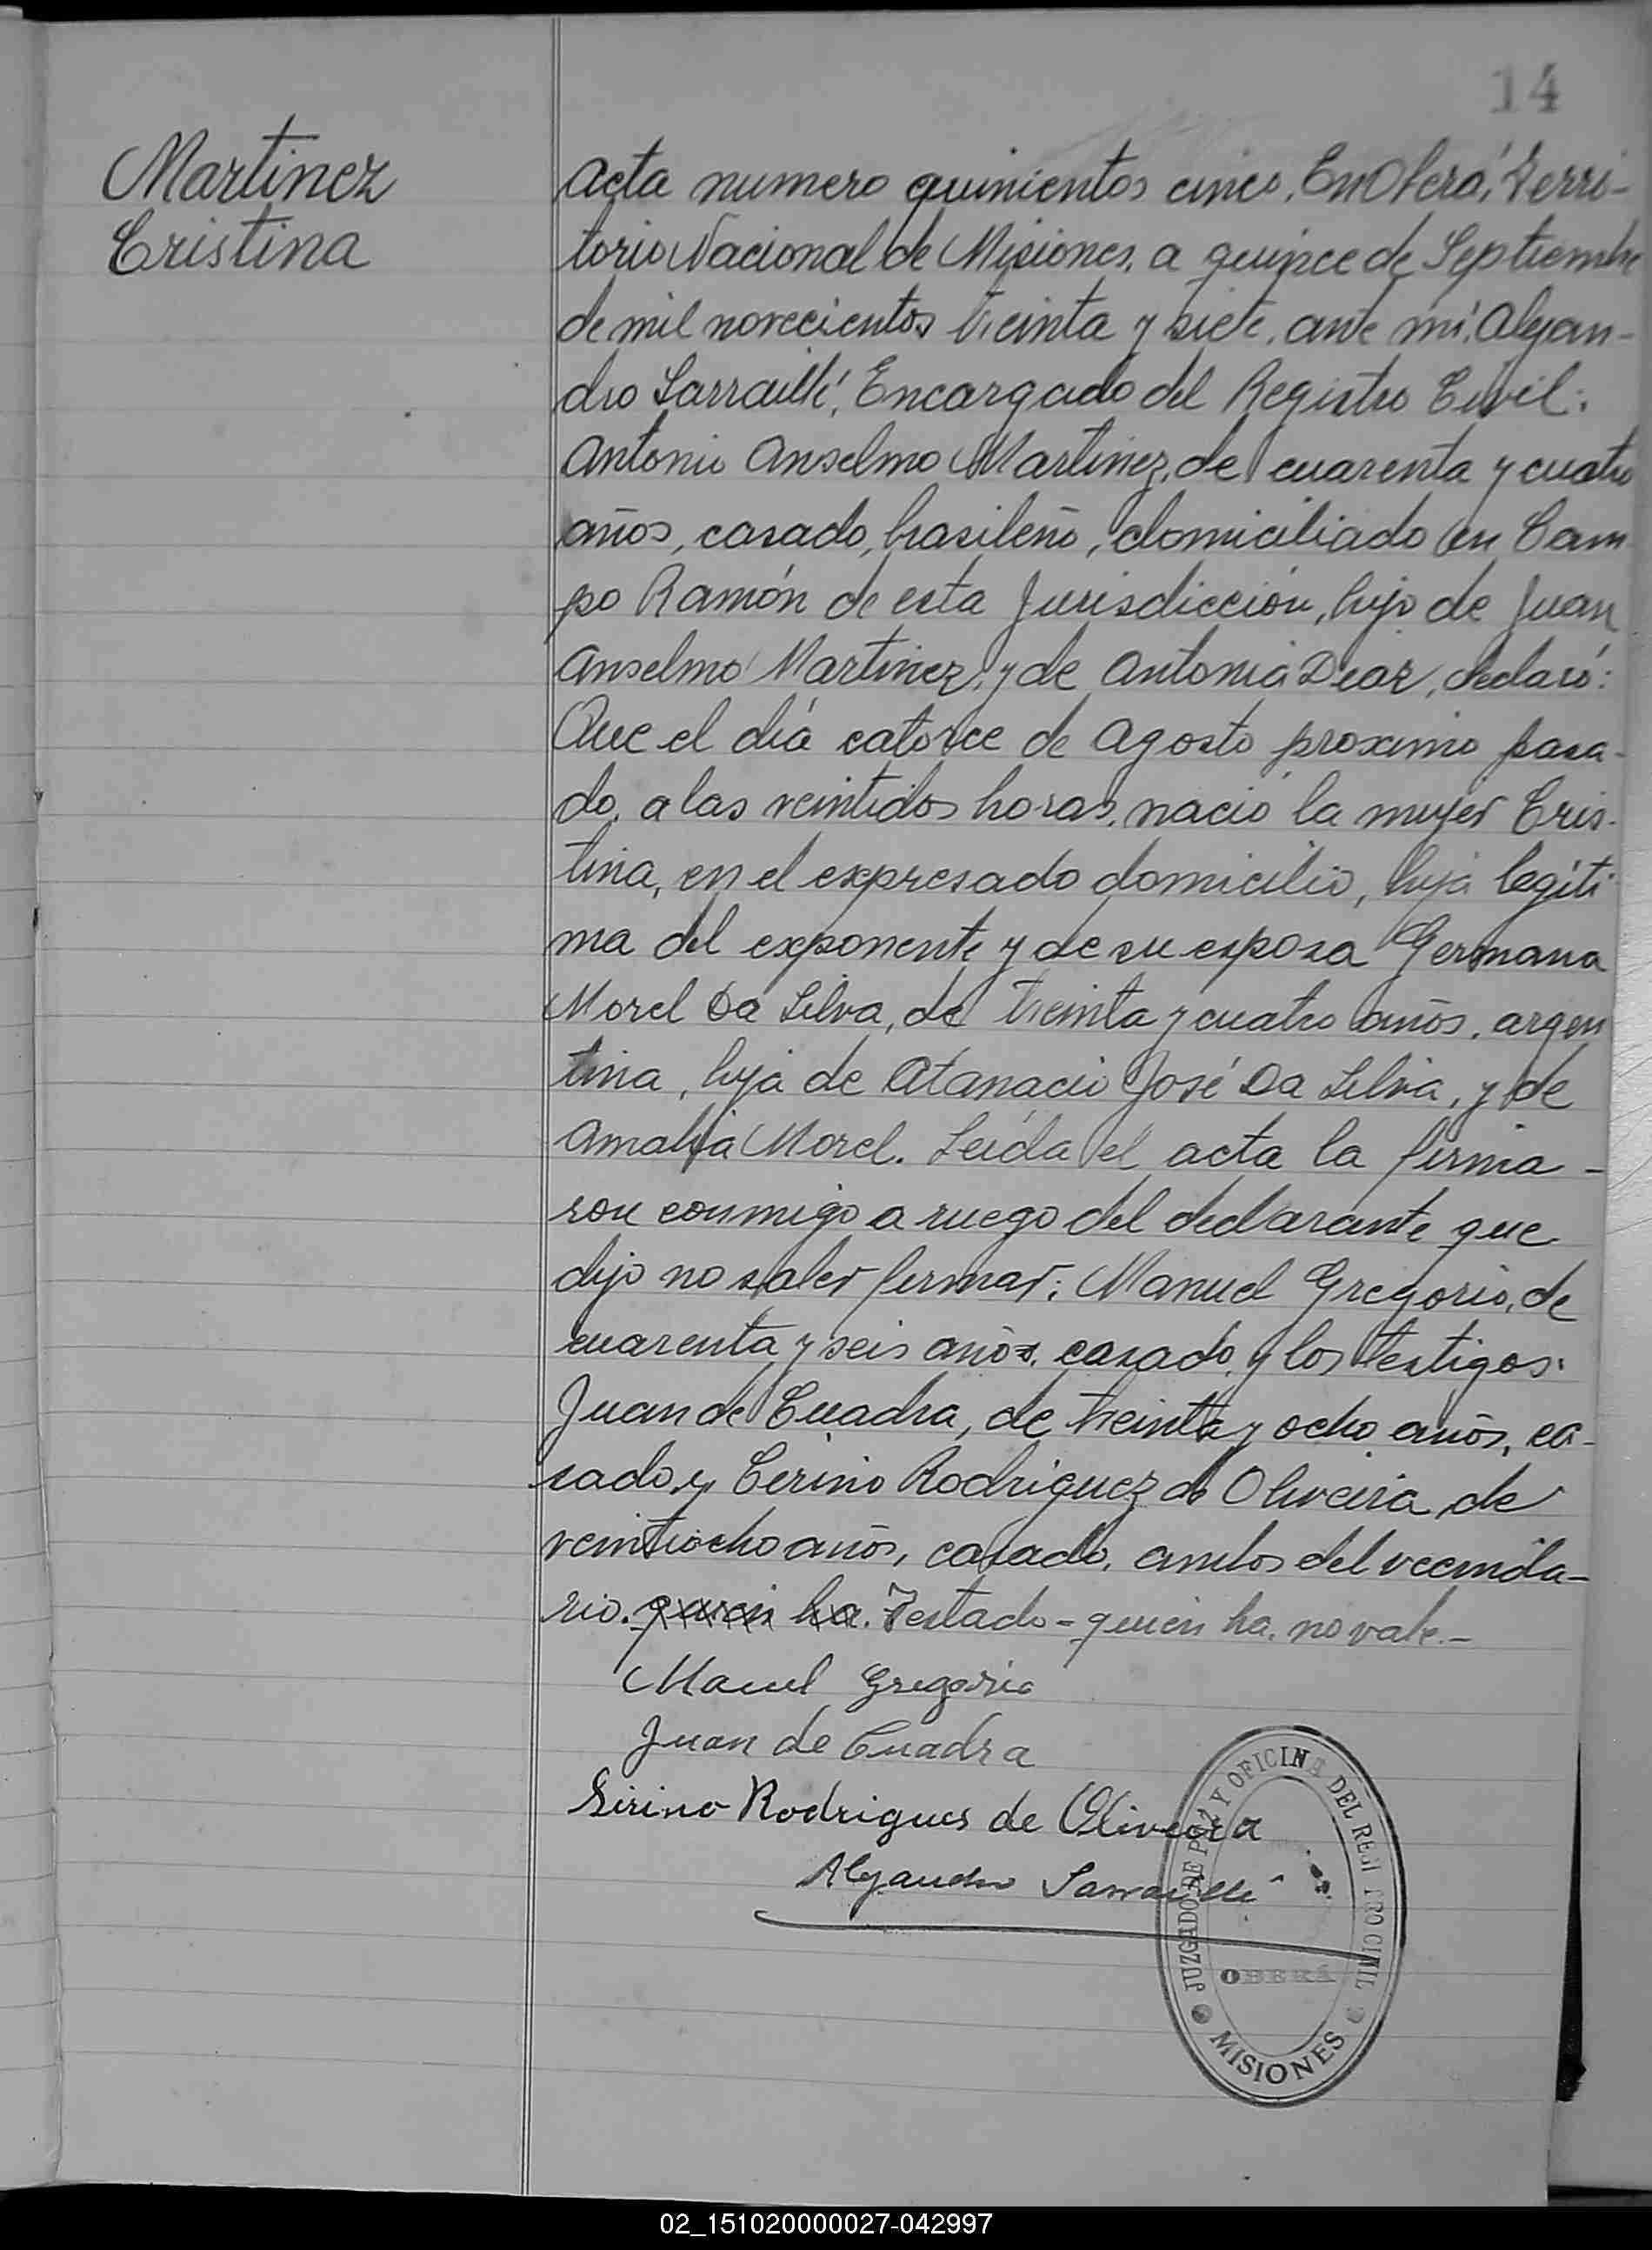 14
Martinez
Cristina
Acta numero quinientos cinco. En Oberá, Terri-
torio Nacional de Misiones, a quince de Septiembre
de mil novecientos treinta y siete, ante mí, Alejan-
dro Sarraillé, Encargado del Registro Civil:
Antonio Anselmo Martinez, de cuarenta y cuatro
años, casado, brasileño, domiciliado en Cam
po Ramón de esta Jurisdicción, hijo de Juan
Anselmo Martinez, y de Antonia Diaz, declaró:
Que el día catorce de Agosto proximo pasa-
do, a las veintidos horas, nació la mujer Cris-
tina, en el expresado domicilio, hija legíti
ma del exponente y de su esposa Germana
Morel Da Silva, de treinta y cuatro años, argen
tina, hija de Atanacio José Da Silva, y de
Amalia Morel. Leída el acta la firma-
ron conmigo a ruego del declarante que
dijo no saber firmar: Manuel Gregorio, de
cuarenta y seis años, casado, y los testigos:
Juan de Cuadra, de treinta y ocho años, ca-
sado, y Cerino Rodriguez de Oliveira, de
veintiocho años, casado, ambos del vecinda-
rio. quien ha. Testado - quien ha. no vale.-
Manuel Gregorio
Juan de Cuadra
Sirino Rodrigues de Oliveira
Alejandro Sarraillé
JUZGADO DE PAZ Y OFICINA DEL REGISTRO CIVIL
OBERÁ
MISIONES
02_151020000027-042997